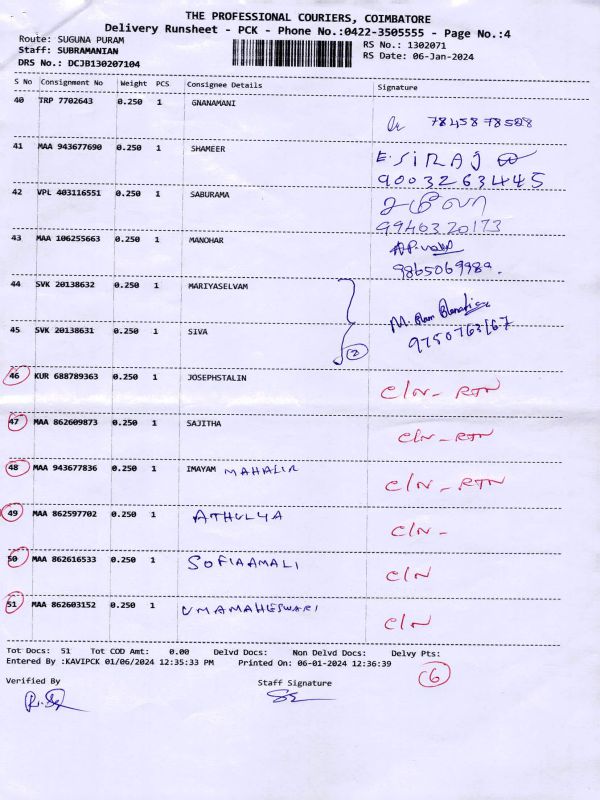 THE PROFESSIONAL COURIERS, COIMBATORE
Delivery Runsheet - PCK - Phone No.:0422-3505555 - Page No.:4
Route: SUGUNA PURAM RS No.: 1302071
Staff: SUBRAMANIAN RS Date: 06-Jan-2024
DRS No.: DCJB130207104
S No Consignment No Weight PCS Consignee Details Signature
40 TRP 7702643 0.250 1 GNANAMANI
7845878508
41 MAA 943677690 0.250 1 SHAMEER E. SIRAJ
9003263445
42 VPL 403116551 0.250 1 SABURAMA
9946320173
43 MAA 106255663 0.250 1 MANOHAR
9865069989.
44 SVK 20138632 0.250 1 MARIYASELVAM
45 SVK 20138631 0.250 1 SIVA
9750763167
2
46 KUR 688789363 0.250 1 JOSEPHSTALIN C/N - RTN
47 MAA 862609873 0.250 1 SAJITHA C/N - RTN
48 MAA 943677836 0.250 1 IMAYAM MAHALIR C/N - RTN
49 MAA 862597702 0.250 1 ATHULYA C/N -
50 MAA 862616533 0.250 1 SOFIAAMALI C/N
51 MAA 862603152 0.250 1 UMAMAHESWARI C/N
Tot Docs: 51 Tot COD Amt: 0.00 Delvd Docs: Non Delvd Docs: Delvy Pts:
Entered By :KAVIPCK 01/06/2024 12:35:33 PM Printed On: 06-01-2024 12:36:39
6
Verified By Staff Signature